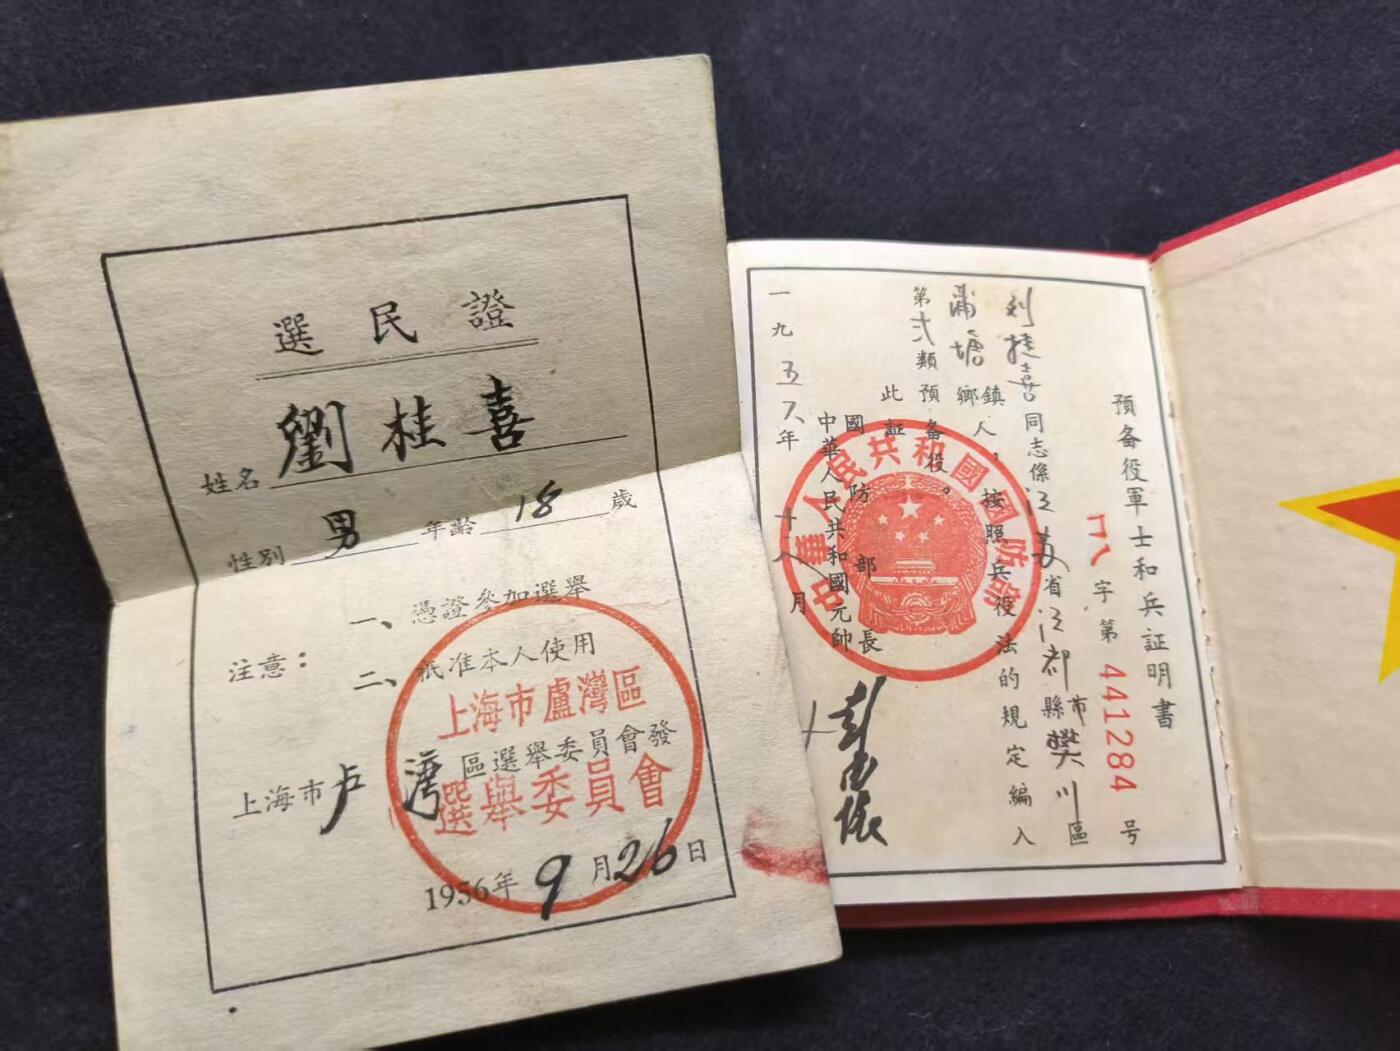 選民證
姓名 劉桂喜
性別 男 年齡 18 歲
注意：
一、憑證參加選舉
二、祇准本人使用
上海市卢湾區選舉委員會發
1956年9月26日
上海市盧灣區
選舉委員會
預备役軍士和兵証明書
字第 441284 号
刘桂喜同志係江苏省江都市縣樊川區
蒲塘鄉鎮人，按照兵役法的規定編入
第弍類預备役。
此証
國防部長
中華人民共和國元帥
彭德懷
一九五八年十月
中華人民共和國國防部